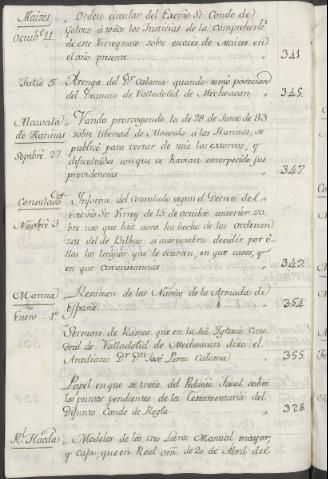 Maizes „ Orden circular del Exc͠mo Sr. Conde de
Octubr͠e 11 Galvez á todos los Justicias de la Comprehens.ⁿ
de este Virreynato sobre escaces de Maizes en
el año presente „ 341.
Julio 5. Arenga del Dr. Calama quando tomó posecion
del Deanato de Valladolid de Mechoacan „ 345.
Alcavala „ Vando prorrogando la de 28 de Junio de 83
de Harinas sobre libertad de Alcavala á las Harinas, se
Septbre. 27 publicó para cortar de raiz los extorvos, y
dificultades con que se havian entorpecido sus
providencias „ 347.
Consulado „ Informe del Consulado segun el Decreto del
Novbre 3 Exc͠mo Sr. Virrey de 15 de Octubre anterior so-
bre uso que há aora ha hecho de las Ordenan-
zas del de Bilbao: si acostumbra decidir por e-
llas los litigios, que le ocurren, en que casos, y
en que circunstancias „ 349.
Marina „ Resumen de los Navios de la Armada de
Enero 1.º España „ 354.
Sermon de Ramos que en la Sta. Iglesia Cate-
dral de Valladolid de Mechoacan dixo el
Arcediano Dr. Dn. José Perez Calama „ 355.
Papel en que se trata del Pedimto. Fiscal sobre
los puntos pendientes de la Testamentaria del
Difunto Conde de Regla „ 328.
Rl. Hacda. „ Modelos de los tres Libros Manual mayor,
y Caja que en Real orn. de 20. de Abril del